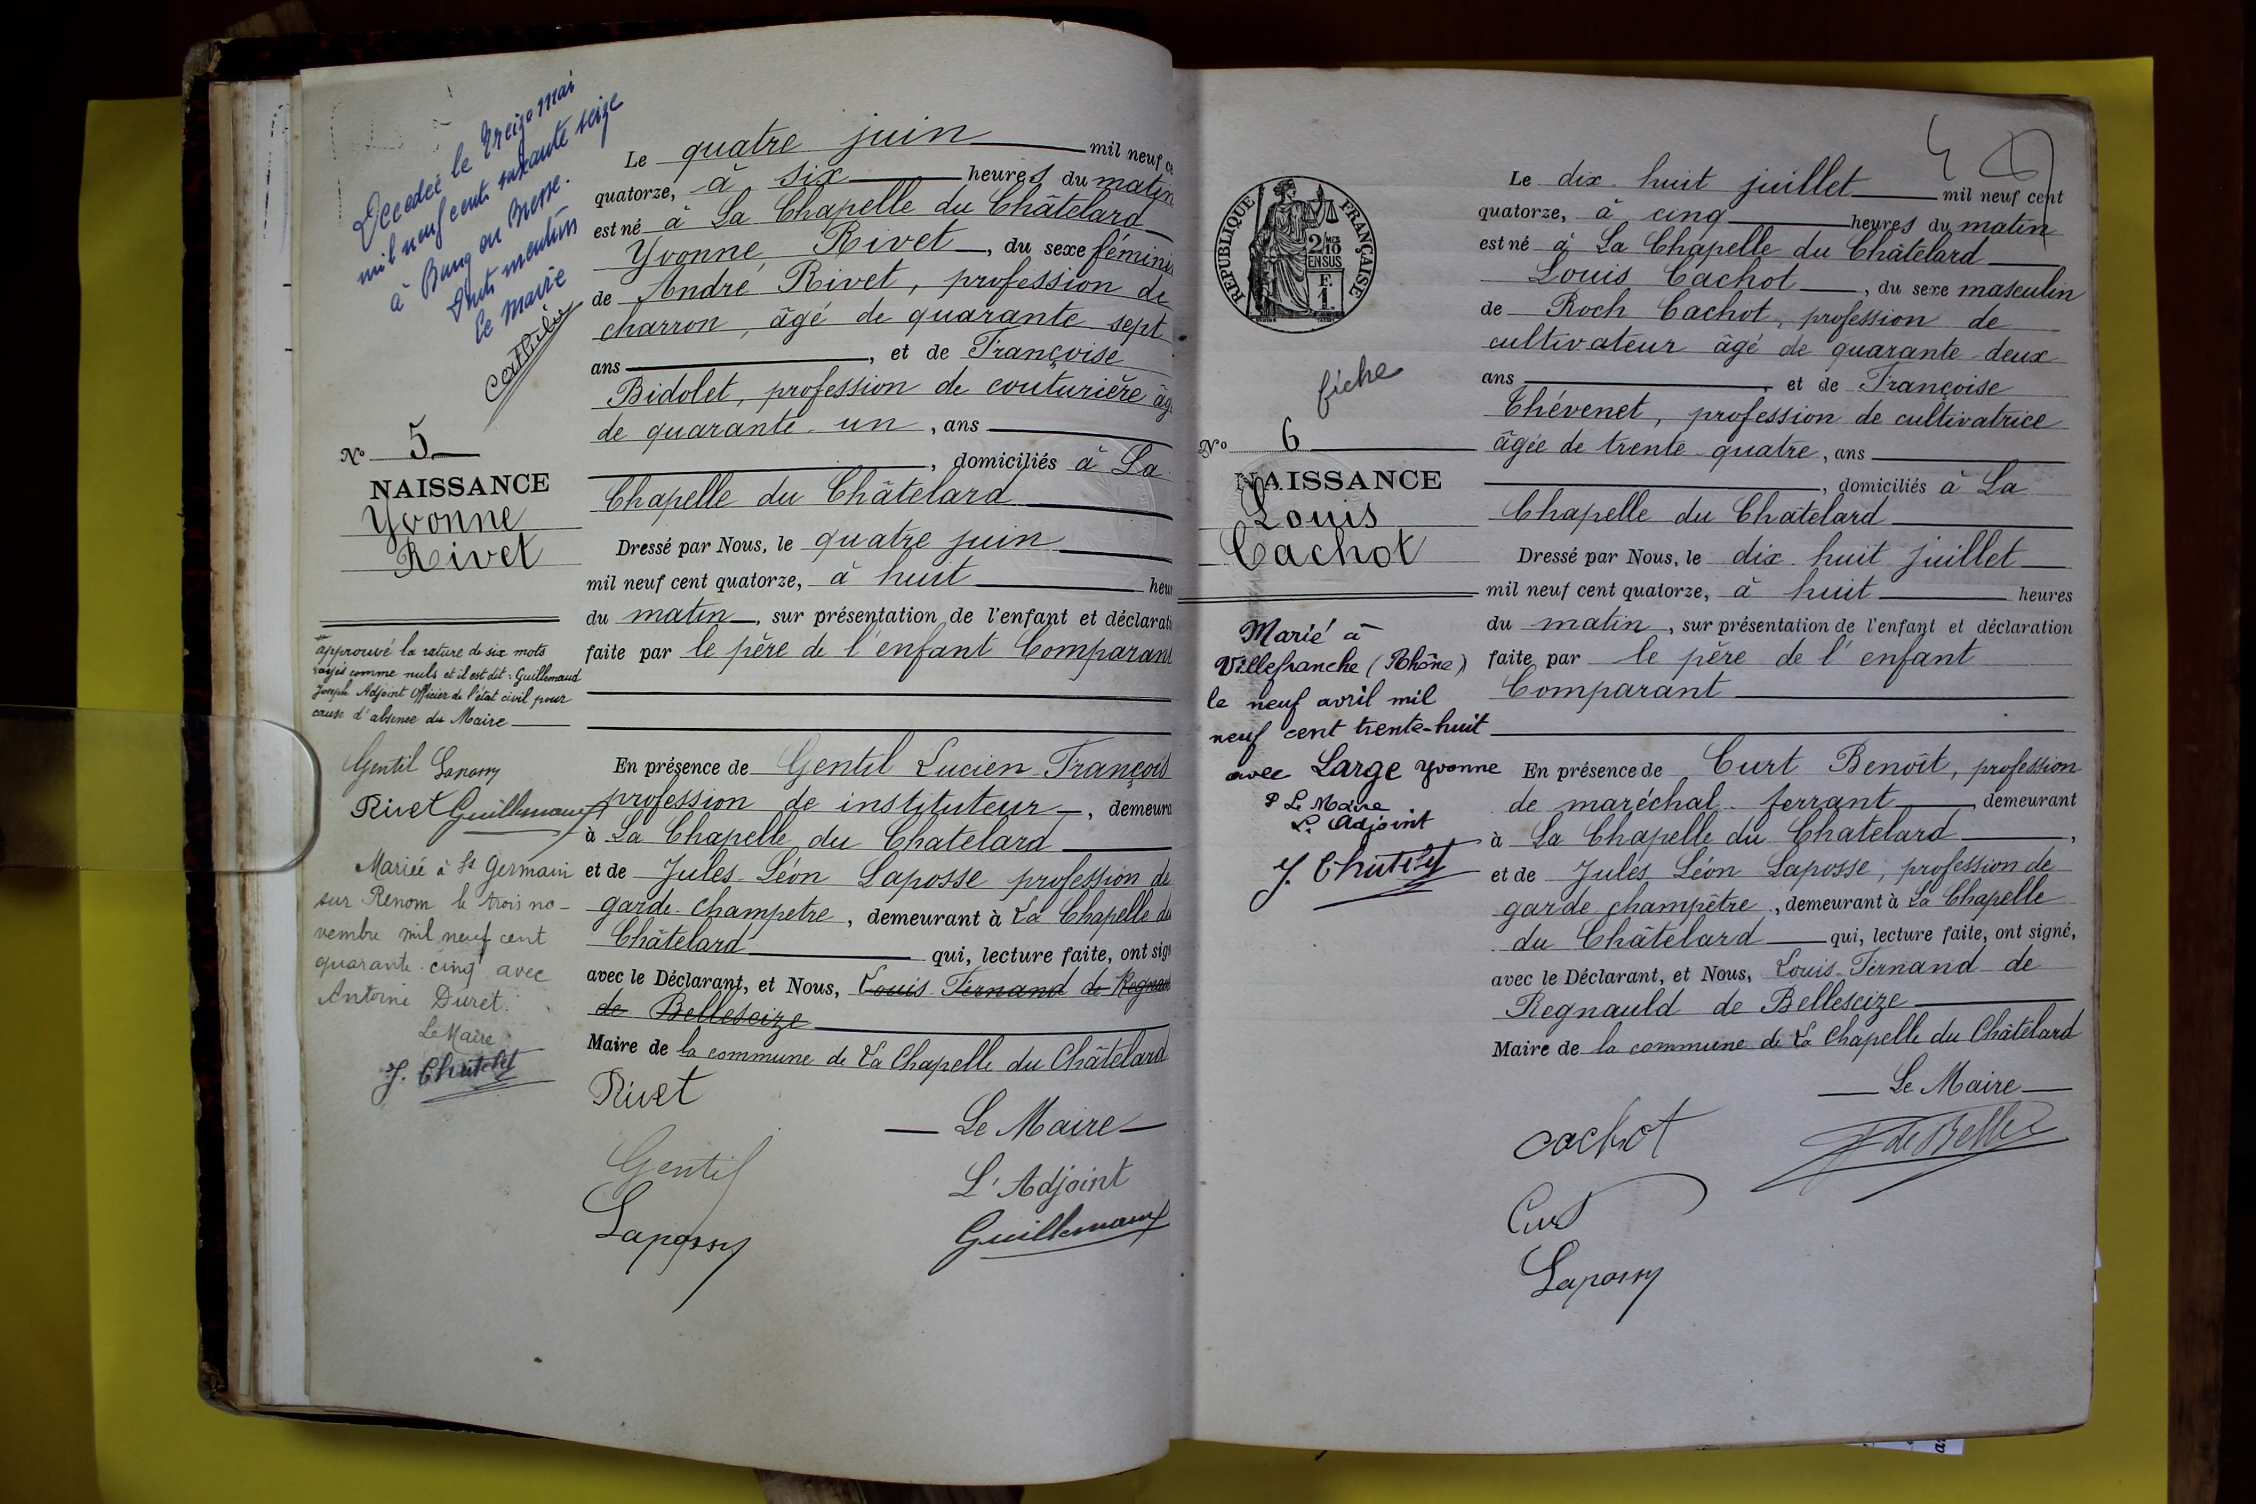 Décédée le treize mai
mil neuf cent soixante seize
à Bourg en Bresse.
Dont mention
Le Maire
Le quatre juin mil neuf ce
quatorze, à six heures du matin
est né à La Chapelle du Châtelard
Yvonne Rivet, du sexe fémini
de André Rivet, profession de
charron, âgé de quarante sept
ans, et de Françoise
Bidolet, profession de couturière âg
de quarante-un, ans
, domiciliés à La
Chapelle du Châtelard
Dressé par Nous, le quatre juin
mil neuf cent quatorze, à huit heu
du matin, sur présentation de l'enfant et déclarati
faite par le père de l'enfant Comparant
En présence de Gentil Lucien-François
profession de instituteur, demeura
à La Chapelle du Chatelard
et de Jules Léon Laposse profession de
garde-champetre, demeurant à La Chapelle du
Châtelard qui, lecture faite, ont sign
avec le Déclarant, et Nous, Louis-Fernand de Regnau
de Bellescize
Maire de la commune de La Chapelle du Châtelard
Rivet
Le Maire
Gentil
L'Adjoint
Guillemaud
N° 5
NAISSANCE
Yvonne
Rivet
approuvé la rature de six mots
rayés comme nuls et il est dit: Guillemaud
Joseph Adjoint Officier de l'état civil pour
cause d'absence du Maire
Gentil
Rivet Guillemaud
Mariée à St Germain
sur Renom le trois no-
vembre mil neuf cent
quarante-cinq avec
Antoine Duret.
Le Maire
RÉPUBLIQUE FRANÇAISE
2/10
EN SUS
F.
1.
fiche
N° 6
NAISSANCE
Louis
Cachot
Marié à
Villefranche (Rhône)
le neuf avril mil
neuf cent trente-huit
avec Large Yvonne
P Le Maire
L'Adjoint
Le dix-huit juillet mil neuf cent
quatorze, à cinq heures du matin
est né à La Chapelle du Châtelard
Louis Cachot, du sexe masculin
de Roch Cachot, profession de
cultivateur âgé de quarante-deux
ans, et de Françoise
Thévenet, profession de cultivatrice
âgée de trente-quatre, ans
, domiciliés à La
Chapelle du Chatelard
Dressé par Nous, le dix-huit juillet
mil neuf cent quatorze, à huit heures
du matin, sur présentation de l'enfant et déclaration
faite par le père de l'enfant
Comparant
En présence de Curt Benoît, profession
de maréchal-ferrant, demeurant
à La Chapelle du Chatelard,
et de Jules Léon Laposse, profession de
garde champêtre, demeurant à La Chapelle
du Châtelard qui, lecture faite, ont signé,
avec le Déclarant, et Nous, Louis-Fernand de
Regnauld de Bellescize
Maire de la commune de La Chapelle du Châtelard
Le Maire
Cachot
Curt